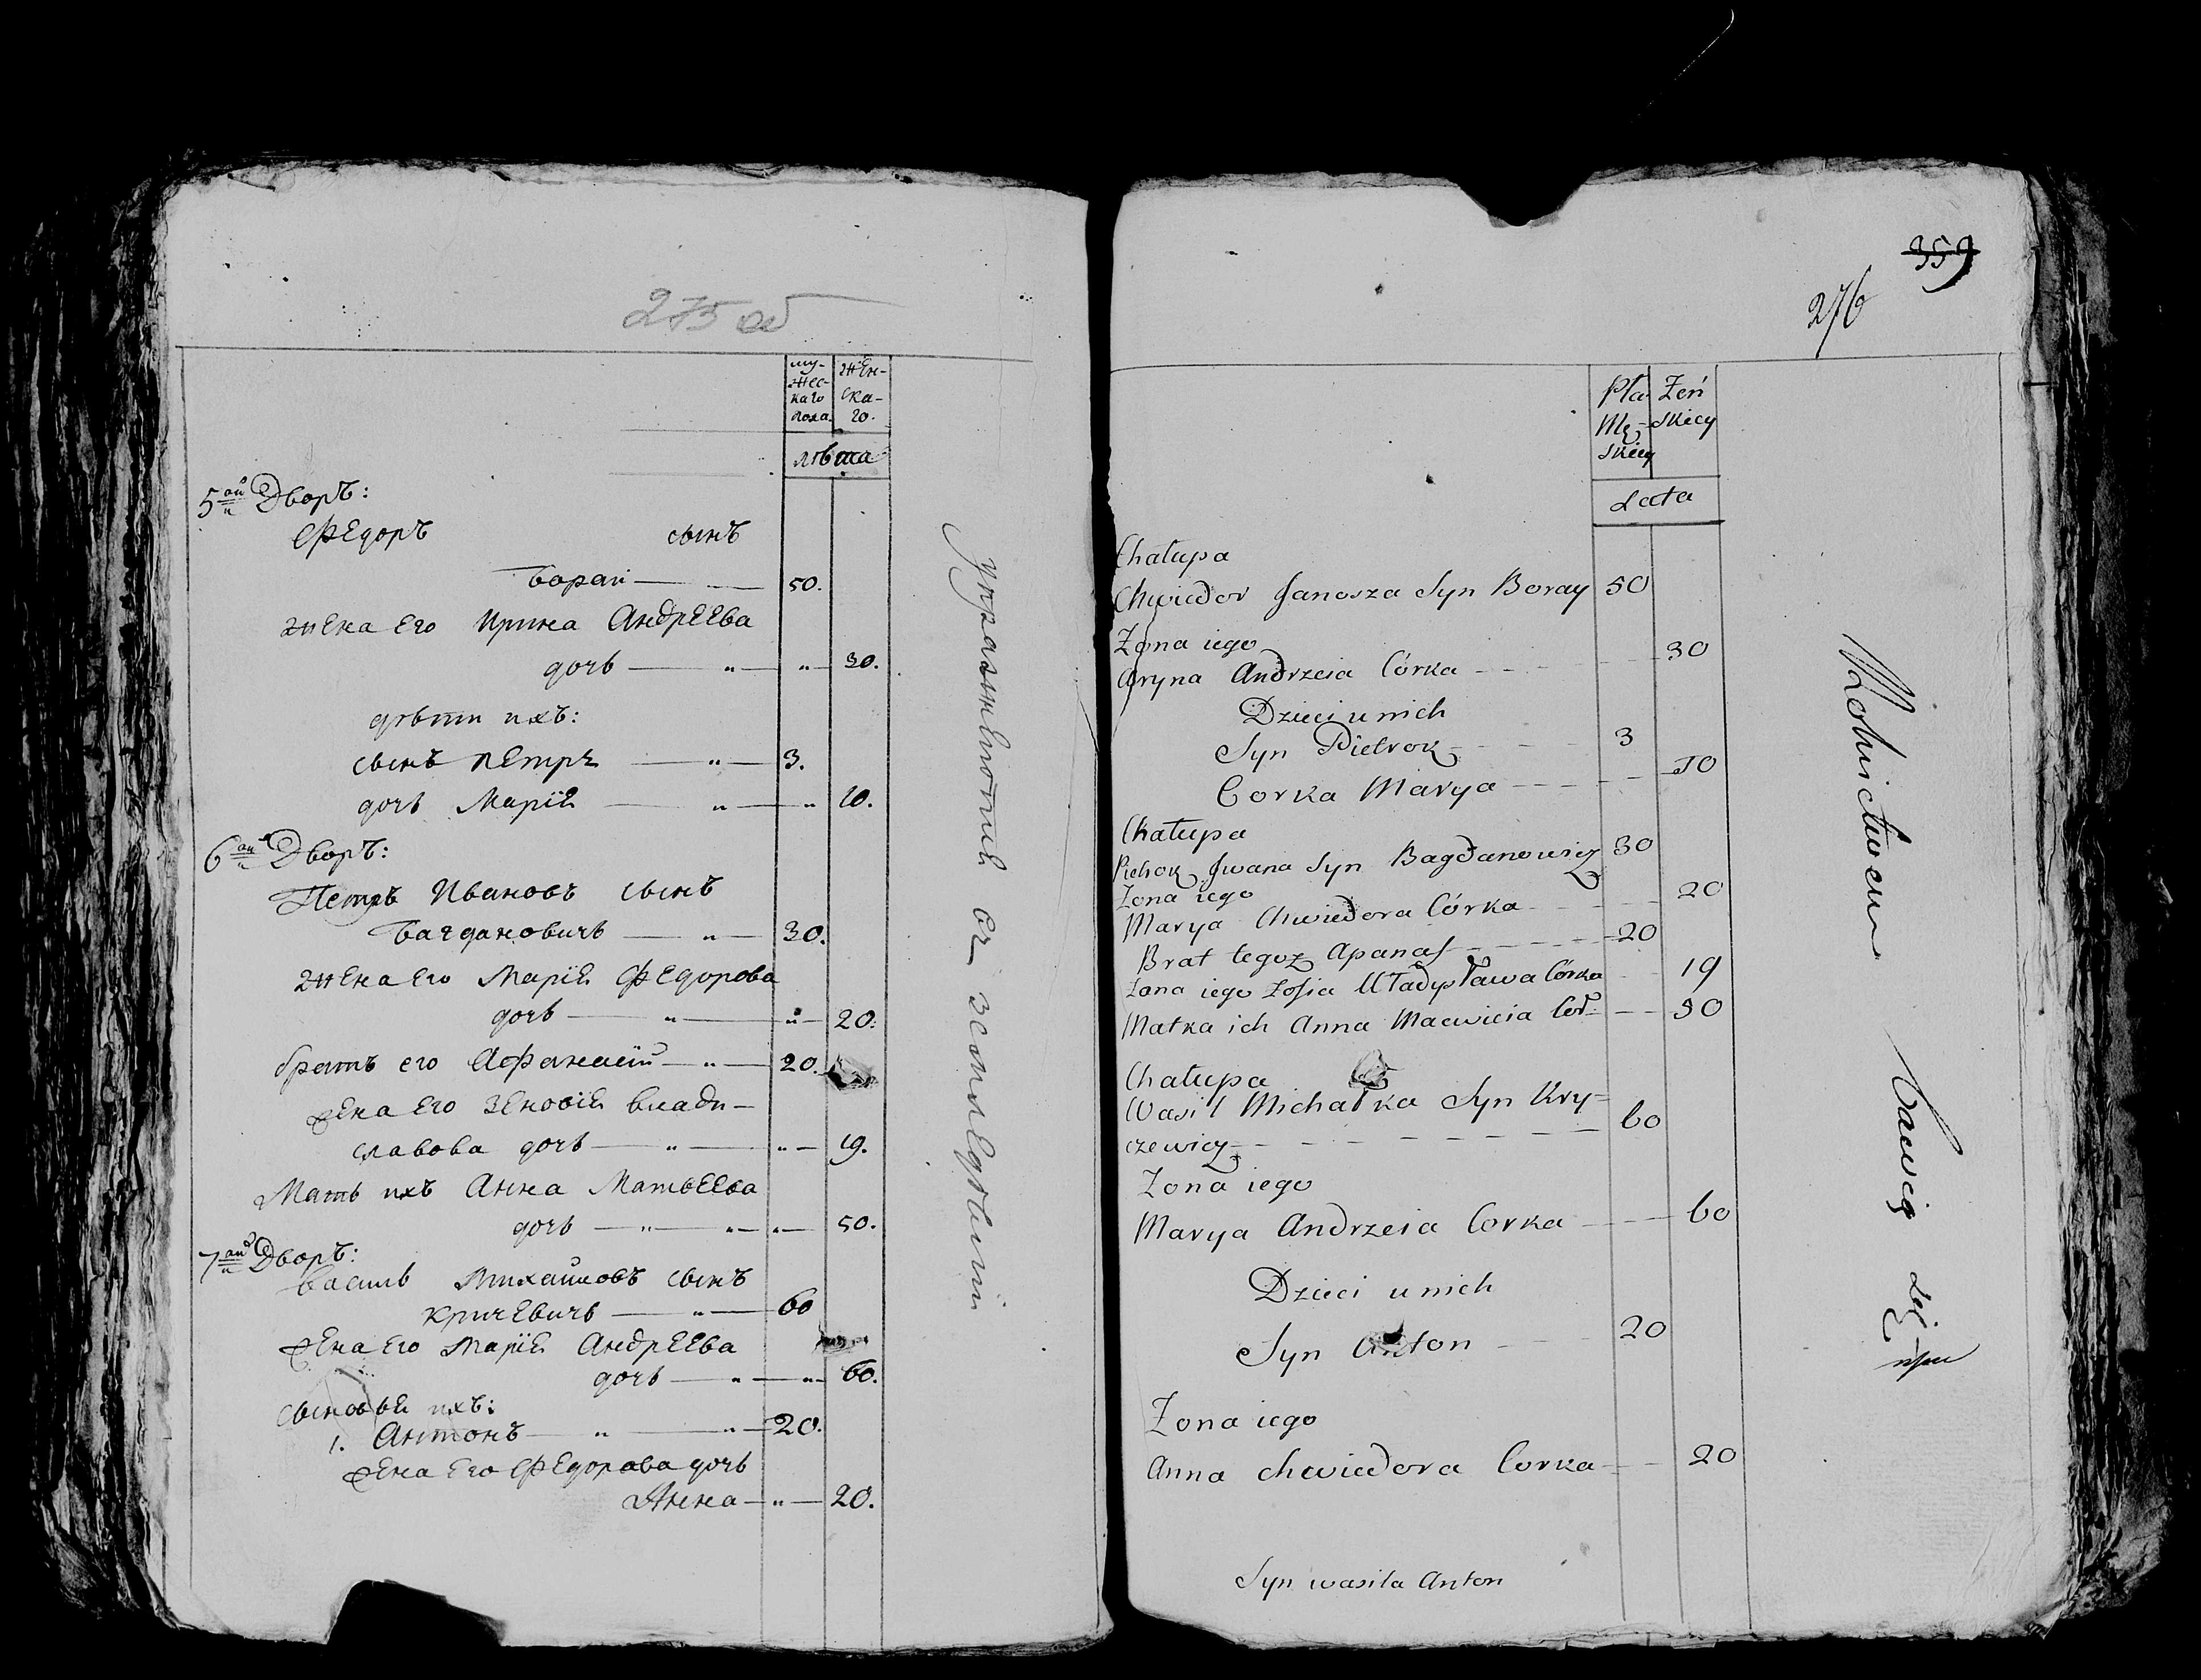 275 об
му-
жес-
каго
пола.
жен-
ска-
го.
лѣта
5ой Дворъ:
Федоръ сынъ
Борай — 50.
жена его Ирина Андреева
дочь — „ — „ — 30.
дѣти ихъ:
сынъ Петръ — „ — 3.
дочь Марія — „ — „ 10.
6ой Дворъ:
Петръ Ивановъ сынъ
Багдановичь — „ — 30.
жена его Марія Федорова
дочь — „ — „ — 20.
братъ его Афанасій — „ — 20.
жена его Зеновія Влади-
славова дочь — „ — „ — 19.
Мать ихъ Анна Матвеева
дочь — „ — „ — „ — 50.
7ой Дворъ:
Василь Михайловъ сынъ
Кричевичь — „ — 60
жена его Марія Андреева
дочь — „ — „ — 60.
сыновья ихъ:
1. Антонъ — „ — „ — 20.
жена его Федорова дочь
Анна — „ — 20.
Упражняются въ земледѣліи
359
276
Płci
Mę-
skiey
Żeń
skiey
Lata
Chałupa
Chwiedor Janosza Syn Boray 50
Żona iego
Aryna Andrzeia Córka - - - 30
Dzieci u nich
Syn Pietrok - - - 3
Corka Marya - - - 10
Chałupa
Pietrok Jwana Syn Bagdanowicz 30
Żona iego
Marya Chwiedora Córka - - - 20
Brat tegoż Apanas - - - 20
Żona iego Zofia Władysława Córka - - 19
Matka ich Anna Macwieia Cor: - - 50
Chałupa
Wasil Michałka Syn Kry-
czewicz - - - 60
Żona iego
Marya Andrzeia Corka - - - 60
Dzieci u nich
Syn Anton - - 20
Żona iego
Anna Chwiedora Corka - - 20
Syn wasila Anton
Rolnictwem